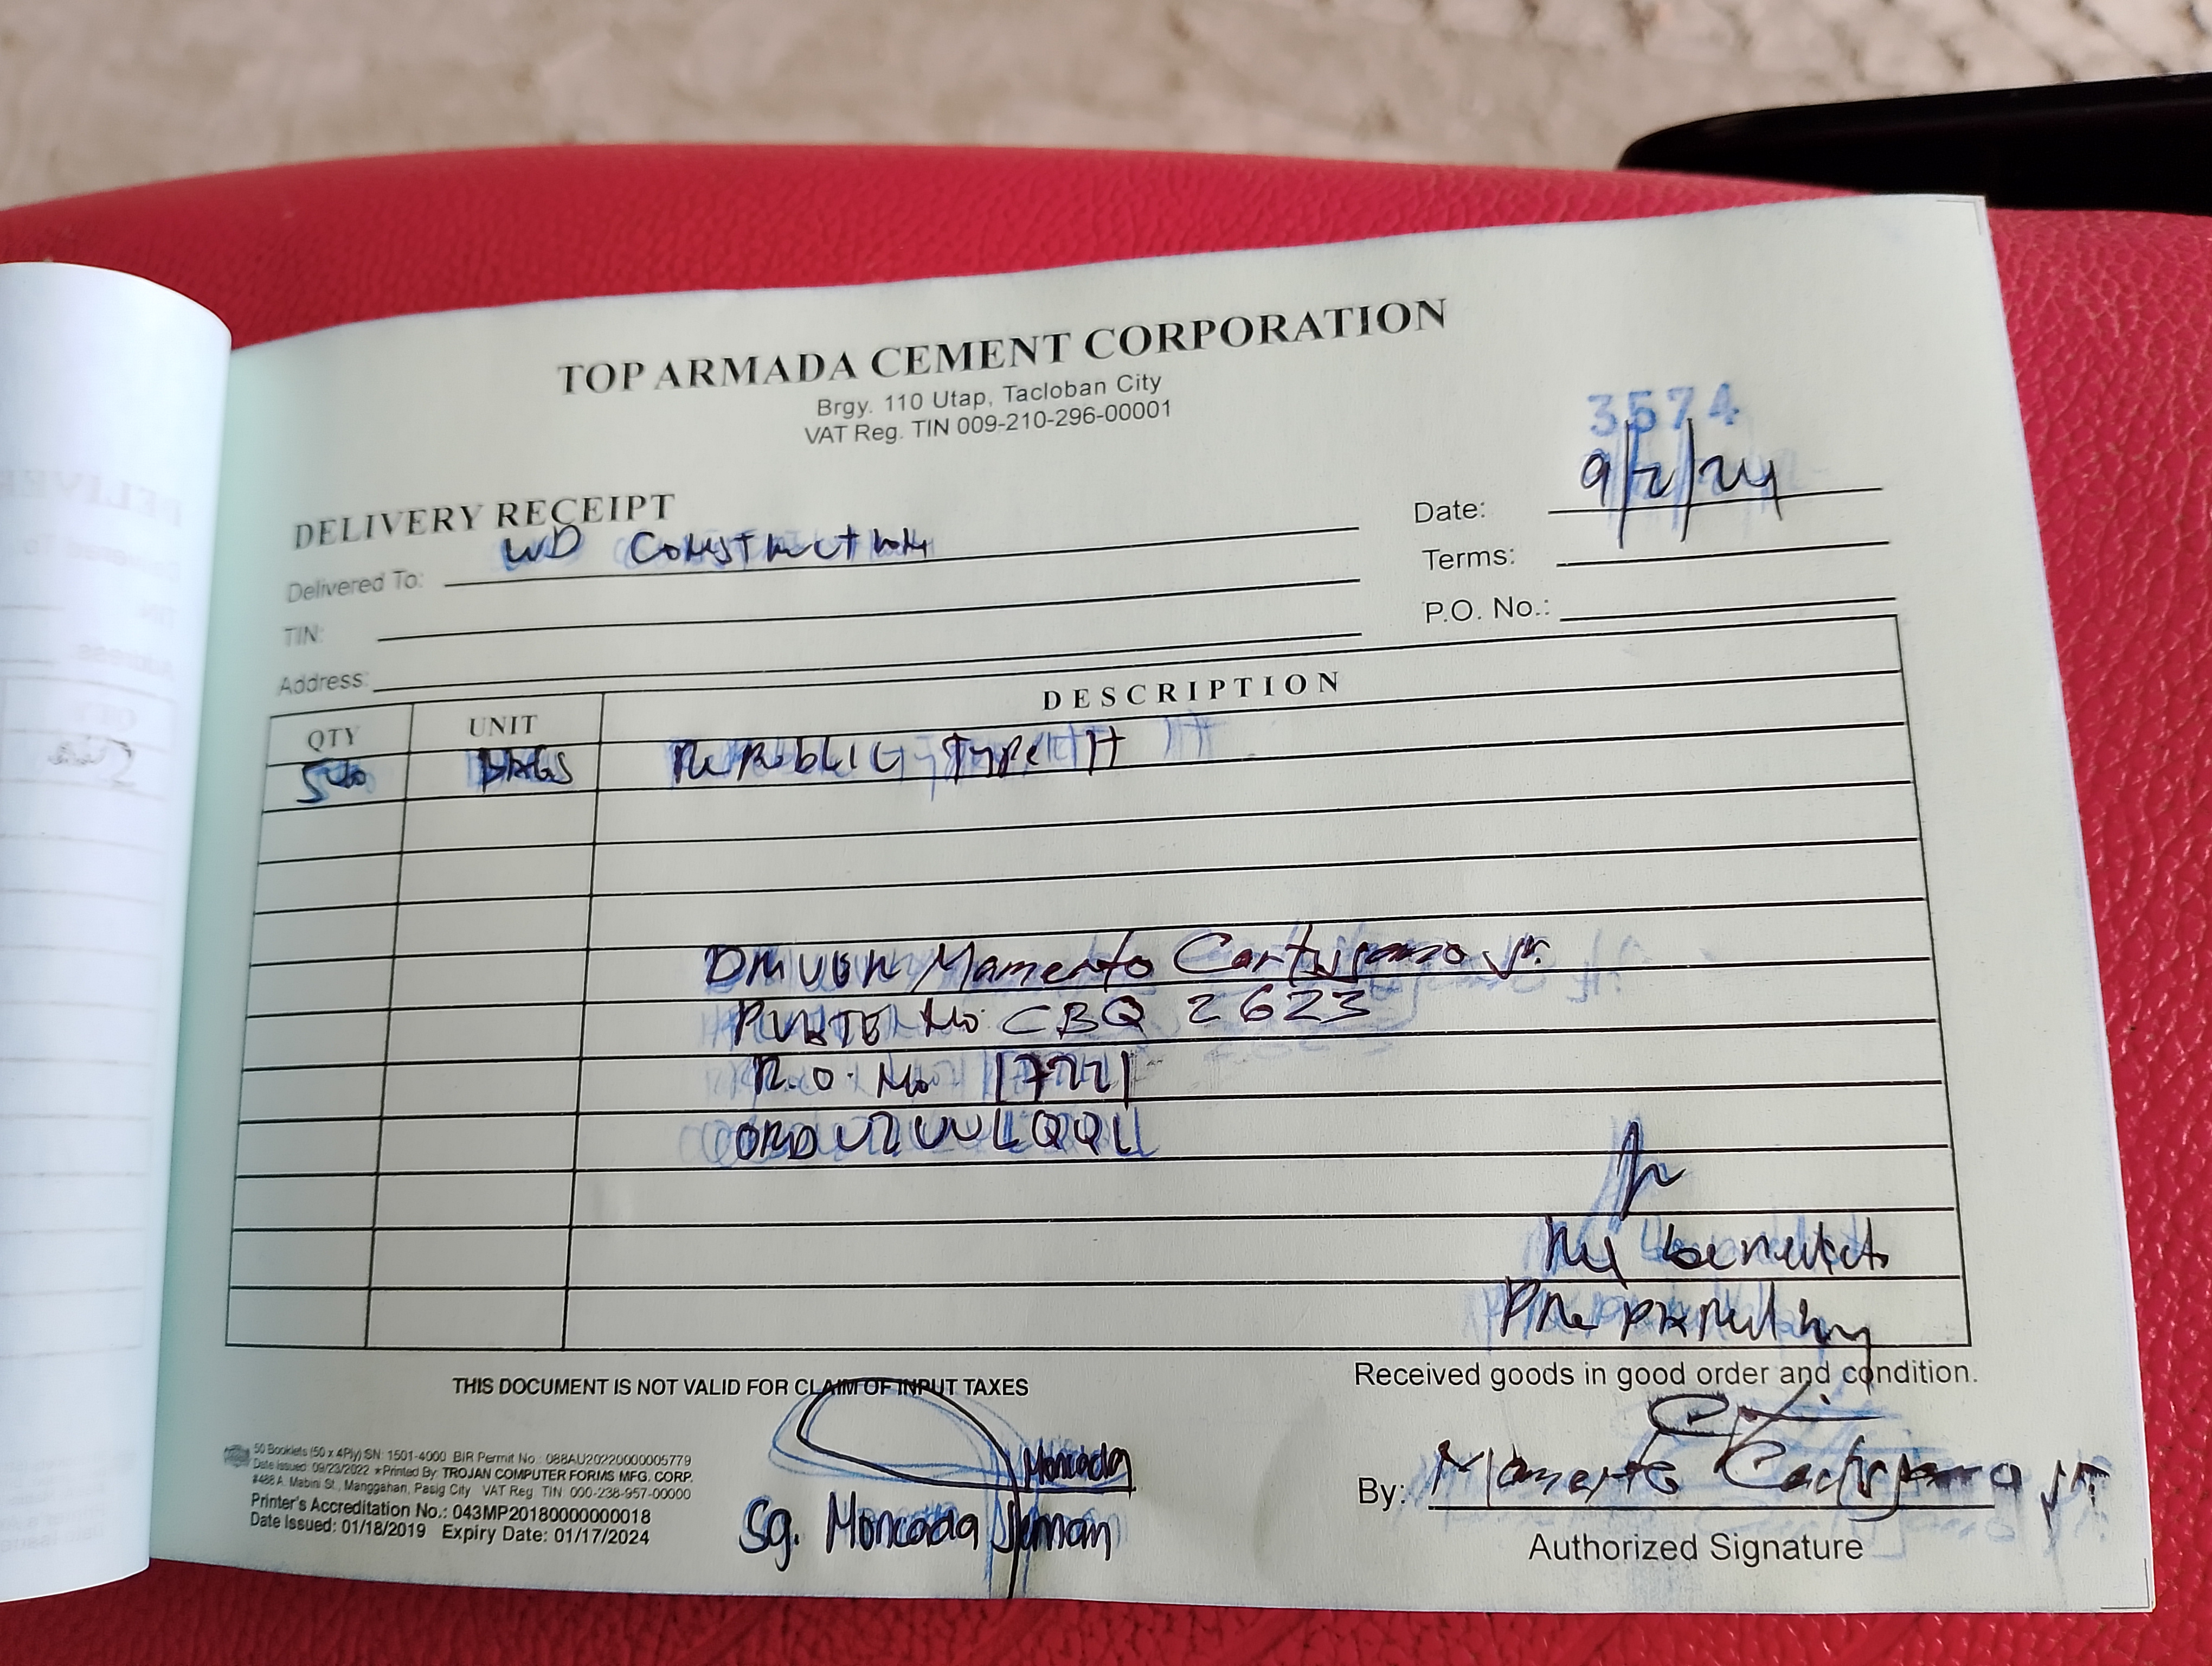 TOP ARMADA CEMENT CORPORATION
Brgy. 110 Utap, Tacloban City
VAT Reg. TIN 009-210-296-00001
3574
DELIVERY RECEIPT
Date: 9/2/24
Delivered To: WD Construction
Terms:
TIN:
P.O. No.:
Address:
QTY UNIT DESCRIPTION
500 BAGS Republic Type
DRIVER Mamerto Jr.
PLATE No. CBQ 2623
R.O. No 17221
Prepared by
THIS DOCUMENT IS NOT VALID FOR CLAIM OF INPUT TAXES
Received goods in good order and condition.
50 Booklets (50 x 4Ply) SN: 1501-4000 BIR Permit No.: 088AU20220000005779
Date Issued: 09/23/2022 ★Printed By: TROJAN COMPUTER FORMS MFG. CORP.
#488 A. Mabini St., Manggahan, Pasig City VAT Reg. TIN: 000-238-957-00000
Printer's Accreditation No.: 043MP20180000000018
Date Issued: 01/18/2019 Expiry Date: 01/17/2024
Moncada
Sg. Moncada
By: Mamerto Jr.
Authorized Signature